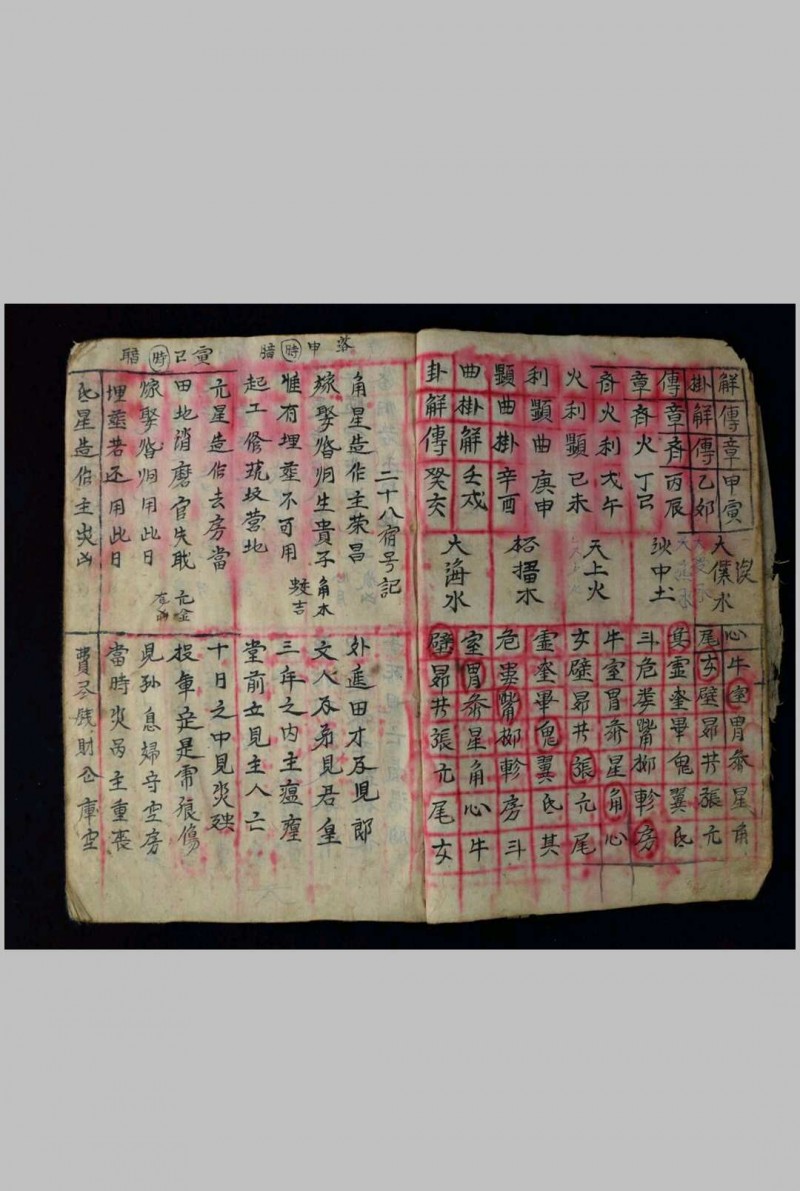 解傳章甲寅
掛解傳乙卯
傳章斉丙辰
章斉火丁巳
斉火利戊午
火利顯己未
利顯曲庚申
顯曲掛辛酉
曲掛解壬戌
卦解傳癸亥
大溪水
沙中土
天上火
柘榴木
大海水
心牛室胃参星角
尾女壁昴井張亢
箕虚奎畢鬼翼氐
斗危娄嘴柳軫房
牛室胃参星角心
女壁昴井張亢尾
虚奎畢鬼翼氐箕
危娄嘴柳軫房斗
室胃参星角心牛
壁昴井張亢尾女
落申時暗
寅巳時暗
二十八宿号記
角星造作主荣昌
外進田才及見郎
嫁娶婚姻生貴子
角木
文人及弟見君皇
惟有埋葬不可用
蛟吉
三年之内主瘟
起工修坟营地
堂前立見主人亡
亢星造作去房當
十日之中見災殃
田地消磨官失职
亢金
投軍定是虎狼傷
嫁娶婚姻用此日
児孫息婦守空房
埋葬若还用此日
當時災禍主重丧
氐星造作主災凶
費尽残財仓庫空